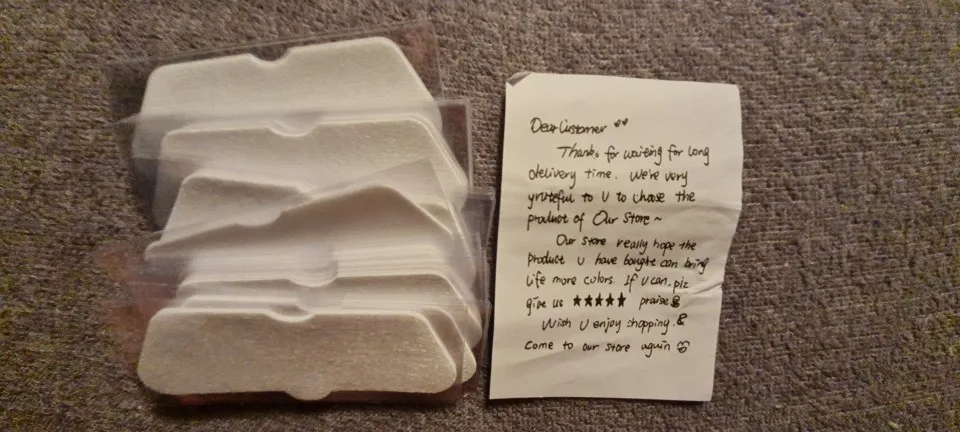 Dear Customer ♥♥
Thanks for waiting for long
delivery time. We're very
grateful to U to choose the
product of Our Store ~
Our store really hope the
product U have bought can bring
life more colors. If U can, plz
give us ★★★★★ praise
Wish U enjoy shopping. &
Come to our store again